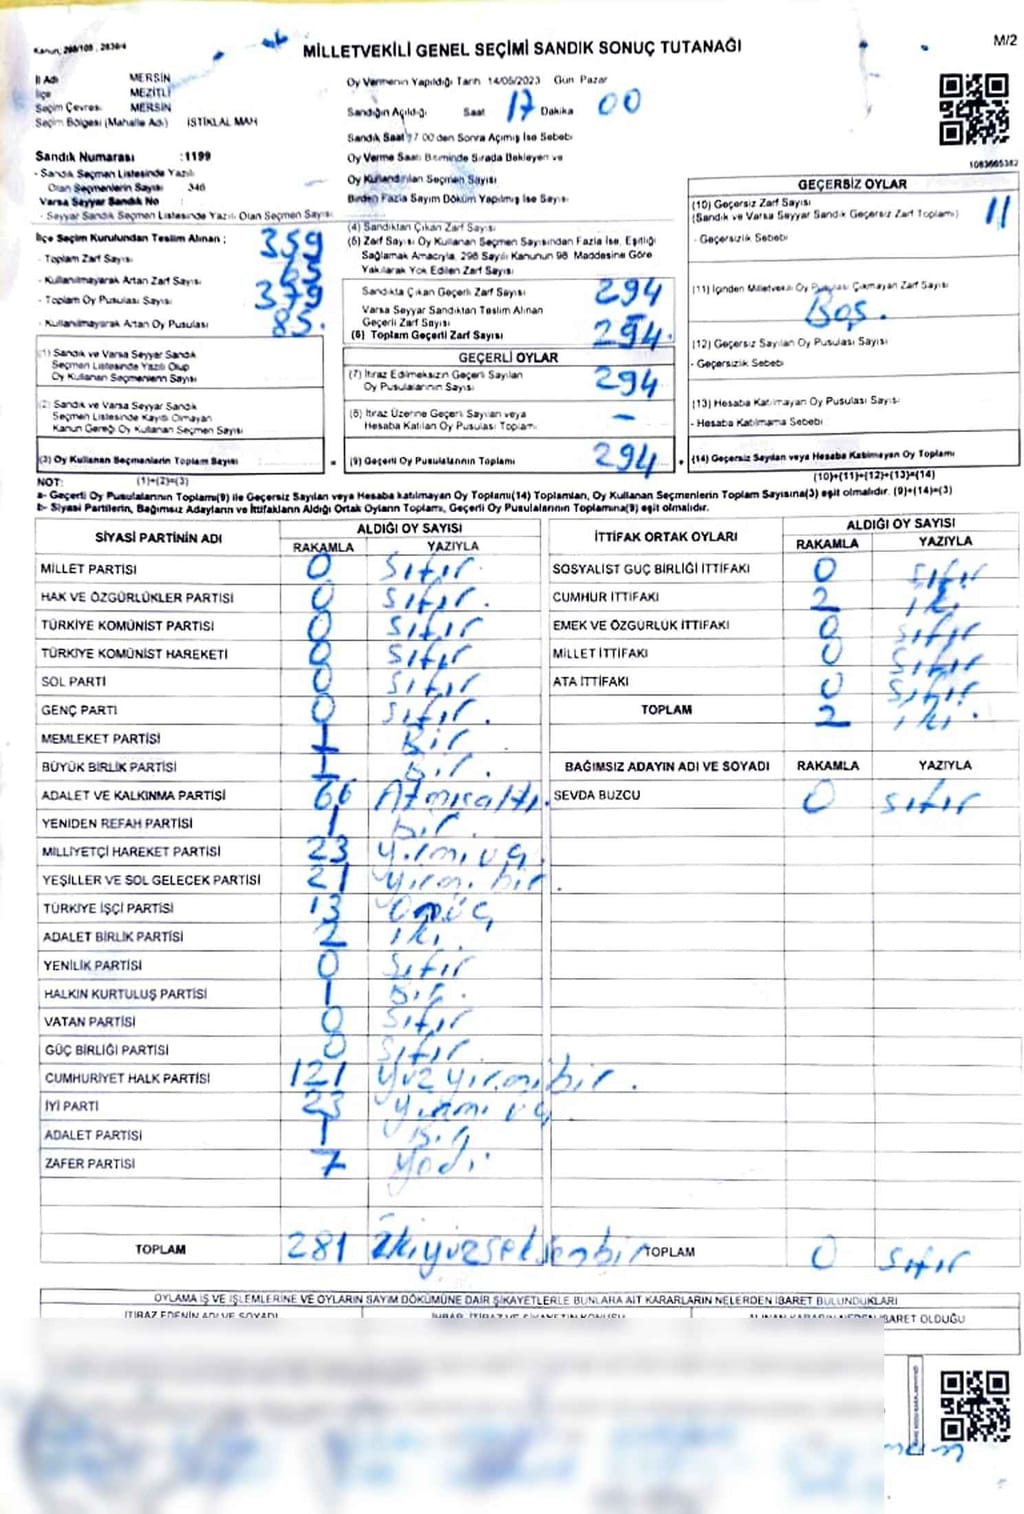 Kanun, 298/105, 2839/4
MİLLETVEKİLİ GENEL SEÇİMİ SANDIK SONUÇ TUTANAĞI
M/2
İl Adı MERSİN
İlçe MEZİTLİ
Seçim Çevresi MERSİN
Seçim Bölgesi (Mahalle Adı) İSTİKLAL MAH
Sandık Numarası :1199
- Sandık Seçmen Listesinde Yazılı
Olan Seçmenlerin Sayısı 346
Varsa Seyyar Sandık No :
- Seyyar Sandık Seçmen Listesinde Yazılı Olan Seçmen Sayısı
İlçe Seçim Kurulundan Teslim Alınan ;
- Toplam Zarf Sayısı 359
- Kullanılmayarak Artan Zarf Sayısı 65
- Toplam Oy Pusulası Sayısı 379
- Kullanılmayarak Artan Oy Pusulası 85.
(1) Sandık ve Varsa Seyyar Sandık
Seçmen Listesinde Yazılı Olup
Oy Kullanan Seçmenlerin Sayısı
(2) Sandık ve Varsa Seyyar Sandık
Seçmen Listesinde Kayıtlı Olmayan
Kanun Gereği Oy Kullanan Seçmen Sayısı
(3) Oy Kullanan Seçmenlerin Toplam Sayısı
Oy Vermenin Yapıldığı Tarih 14/05/2023 Gün Pazar
Sandığın Açıldığı Saat 17 Dakika 00
Sandık Saat 17 00 den Sonra Açımış İse Sebebi
Oy Verme Saati Bitiminde Sırada Bekleyen ve
Oy Kullandırılan Seçmen Sayısı
Birden Fazla Sayım Döküm Yapılmış İse Sayısı
(4) Sandıktan Çıkan Zarf Sayısı
(5) Zarf Sayısı Oy Kullanan Seçmen Sayısından Fazla İse, Eşitliği
Sağlamak Amacıyla, 298 Sayılı Kanunun 98 Maddesine Göre
Yakılarak Yok Edilen Zarf Sayısı
Sandıkta Çıkan Geçerli Zarf Sayısı 294
Varsa Seyyar Sandıktan Teslim Alınan
Geçerli Zarf Sayısı –
(6) Toplam Geçerli Zarf Sayısı 294.
GEÇERLİ OYLAR
(7) İtiraz Edilmeksizin Geçerli Sayılan
Oy Pusulalarının Sayısı 294
(8) İtiraz Üzerine Geçerli Sayılan veya
Hesaba Katılan Oy Pusulası Toplamı –
= (9) Geçerli Oy Pusulalarının Toplamı 294
GEÇERSİZ OYLAR
(10) Geçersiz Zarf Sayısı
(Sandık ve Varsa Seyyar Sandık Geçersiz Zarf Toplamı) 11
- Geçersizlik Sebebi
(11) İçinden Milletvekili Oy Pusulası Çıkmayan Zarf Sayısı
Boş.
(12) Geçersiz Sayılan Oy Pusulası Sayısı
- Geçersizlik Sebebi
(13) Hesaba Katılmayan Oy Pusulası Sayısı
- Hesaba Katılmama Sebebi
+ (14) Geçersiz Sayılan veya Hesaba Katılmayan Oy Toplamı
NOT: (1)+(2)=(3) (10)+(11)+(12)+(13)=(14)
a- Geçerli Oy Pusulalarının Toplamı(9) ile Geçersiz Sayılan veya Hesaba katılmayan Oy Toplamı(14) Toplamları, Oy Kullanan Seçmenlerin Toplam Sayısına(3) eşit olmalıdır. (9)+(14)=(3)
b- Siyasi Partilerin, Bağımsız Adayların ve İttifakların Aldığı Ortak Oyların Toplamı, Geçerli Oy Pusulalarının Toplamına(9) eşit olmalıdır.
SİYASİ PARTİNİN ADI ALDIĞI OY SAYISI
RAKAMLA YAZIYLA
MİLLET PARTİSİ 0 sıfır.
HAK VE ÖZGÜRLÜKLER PARTİSİ 0 sıfır.
TÜRKİYE KOMÜNİST PARTİSİ 0 sıfır
TÜRKİYE KOMÜNİST HAREKETİ 0 sıfır
SOL PARTİ 0 sıfır
GENÇ PARTİ 0 sıfır.
MEMLEKET PARTİSİ 1 Bir
BÜYÜK BİRLİK PARTİSİ 1 Bir.
ADALET VE KALKINMA PARTİSİ 66 Atmışaltı.
YENİDEN REFAH PARTİSİ 1 Bir.
MİLLİYETÇİ HAREKET PARTİSİ 23 yirmi üç
YEŞİLLER VE SOL GELECEK PARTİSİ 21 yirmi bir.
TÜRKİYE İŞÇİ PARTİSİ 13 Onüç
ADALET BİRLİK PARTİSİ 2 iki.
YENİLİK PARTİSİ 0 sıfır
HALKIN KURTULUŞ PARTİSİ 1 Bir.
VATAN PARTİSİ 0 sıfır
GÜÇ BİRLİĞİ PARTİSİ 0 sıfır
CUMHURİYET HALK PARTİSİ 121 yüz yirmi bir.
İYİ PARTİ 23 yirmi üç
ADALET PARTİSİ 1 Bir
ZAFER PARTİSİ 7 yedi
TOPLAM 281 ikiyüzseksenbir
İTTİFAK ORTAK OYLARI ALDIĞI OY SAYISI
RAKAMLA YAZIYLA
SOSYALİST GÜÇ BİRLİĞİ İTTİFAKI 0 sıfır
CUMHUR İTTİFAKI 2 iki
EMEK VE ÖZGÜRLÜK İTTİFAKI 0 sıfır
MİLLET İTTİFAKI 0 sıfır
ATA İTTİFAKI 0 sıfır
TOPLAM 2 iki.
BAĞIMSIZ ADAYIN ADI VE SOYADI RAKAMLA YAZIYLA
SEVDA BUZCU 0 sıfır
TOPLAM 0 sıfır
OYLAMA İŞ VE İŞLEMLERİNE VE OYLARIN SAYIM DÖKÜMÜNE DAİR ŞİKAYETLERLE BUNLARA AİT KARARLARIN NELERDEN İBARET BULUNDUKLARI
İTİRAZ EDENİN ADI VE SOYADI